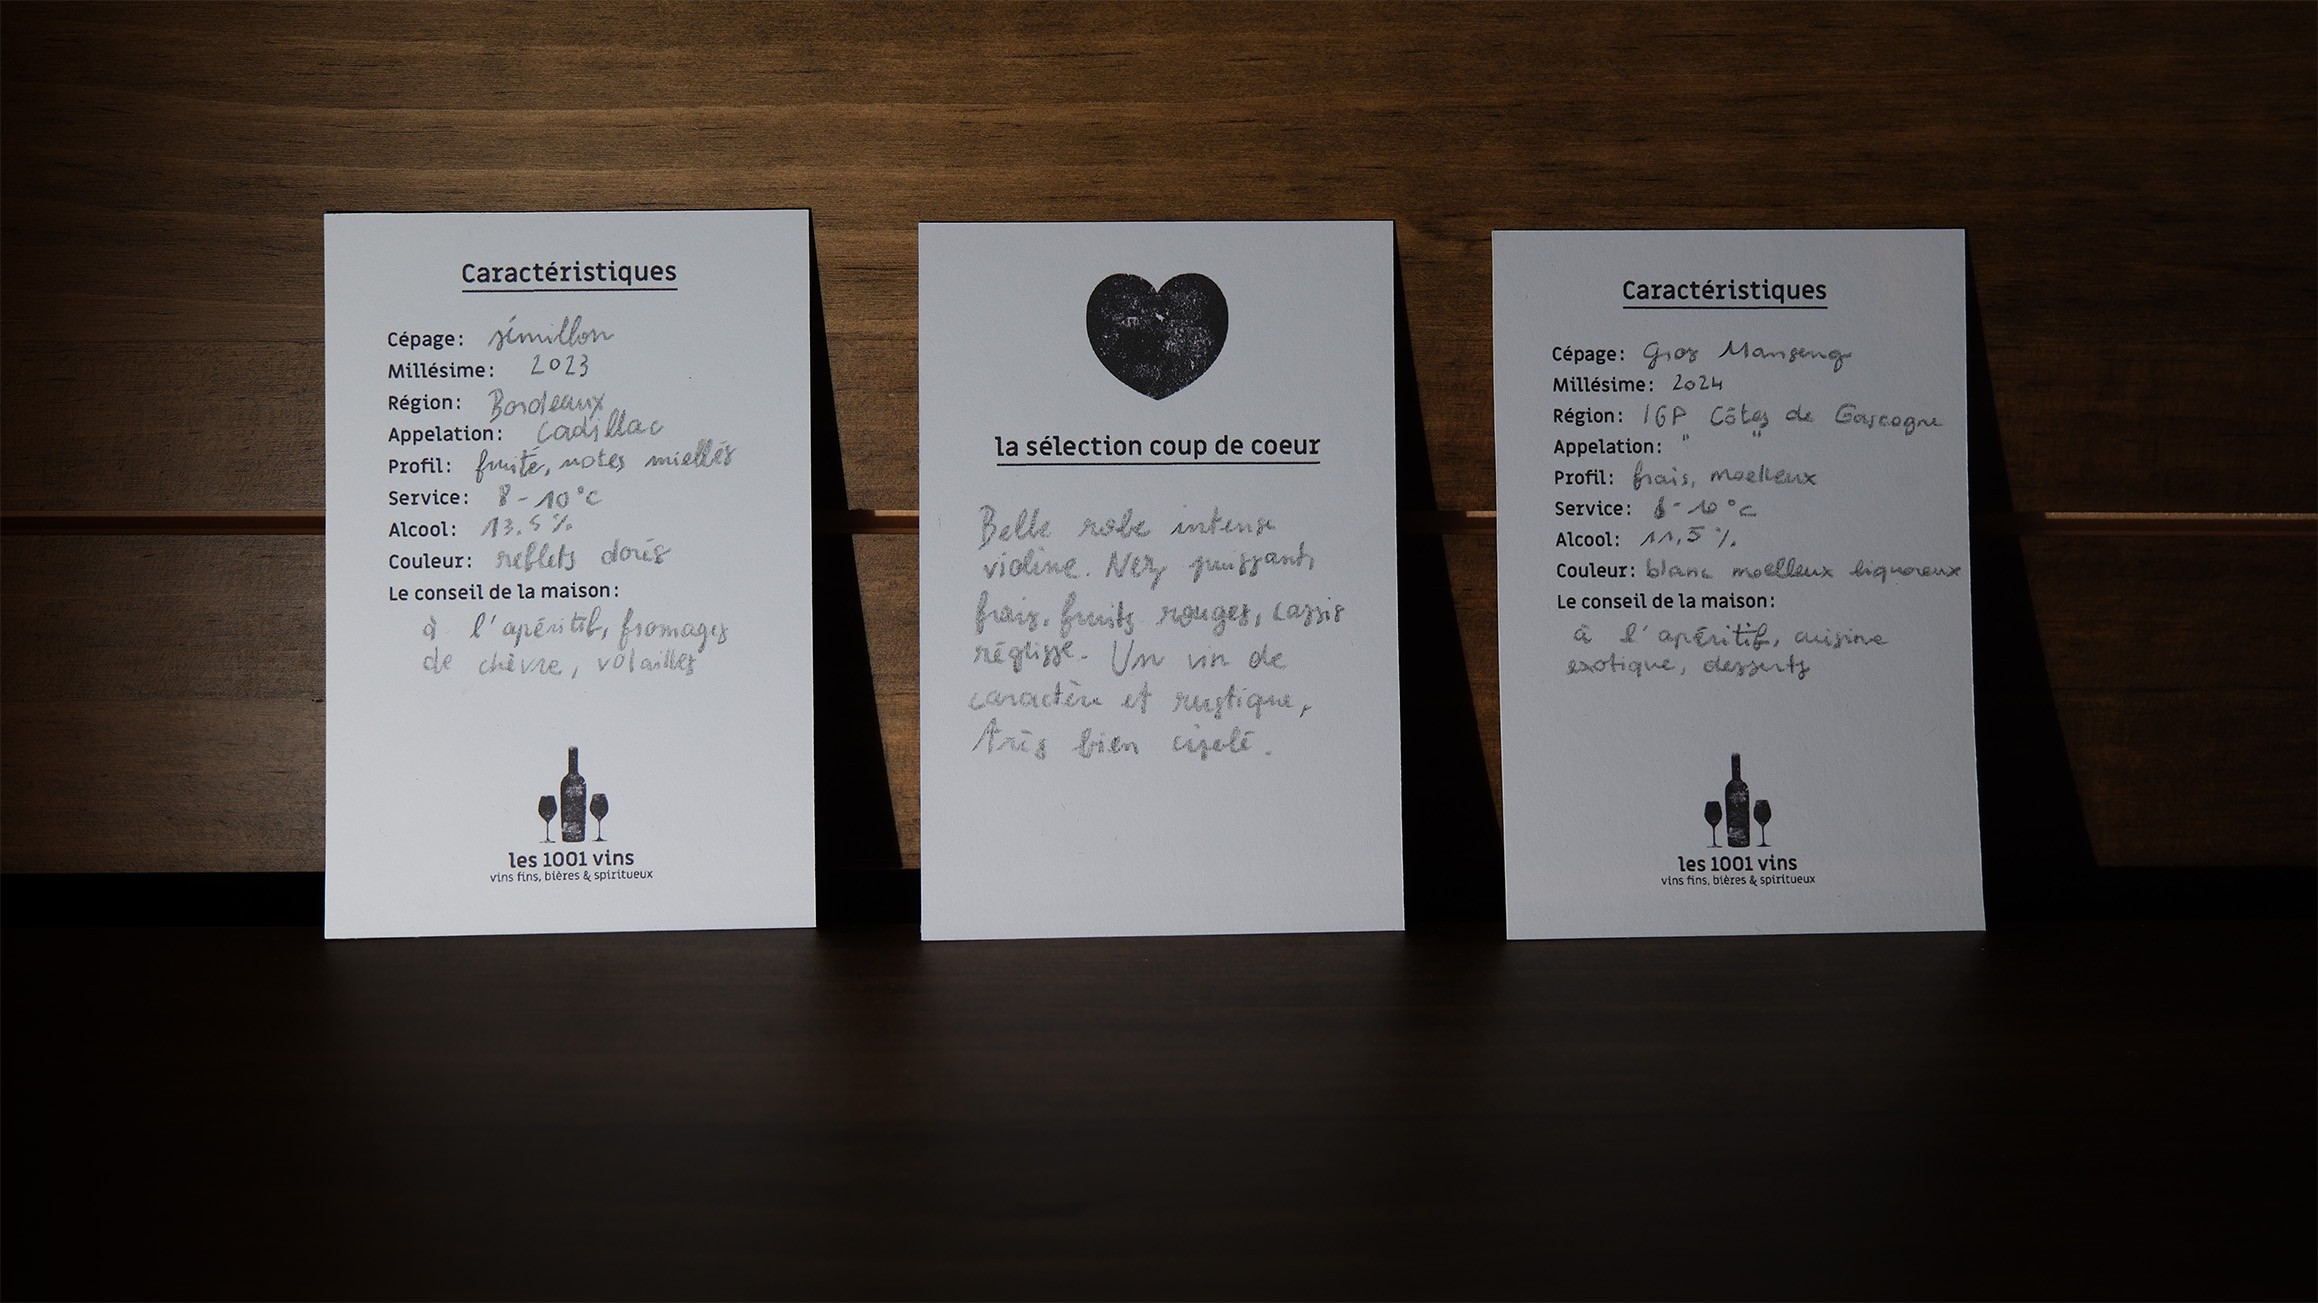 Caractéristiques
Cépage: sémillon
Millésime: 2023
Région: Bordeaux
Appelation: Cadillac
Profil: fruité, notes miellés
Service: 8-10°C
Alcool: 13.5%
Couleur: reflets dorés
Le conseil de la maison:
à l'apéritif, fromages
de chèvre, volailles
les 1001 vins
vins fins, bières & spiritueux
la sélection coup de coeur
Belle robe intense
violine. Nez puissant,
frais, fruits rouges, cassis
réglisse. Un vin de
caractère et rustique,
très bien ciselé.
Caractéristiques
Cépage: Gros Manseng
Millésime: 2024
Région: IGP Côtes de Gascogne
Appelation: " "
Profil: frais, moelleux
Service: 8-10°C
Alcool: 11,5%
Couleur: blanc moelleux liquoreux
Le conseil de la maison:
à l'apéritif, cuisine
exotique, desserts
les 1001 vins
vins fins, bières & spiritueux